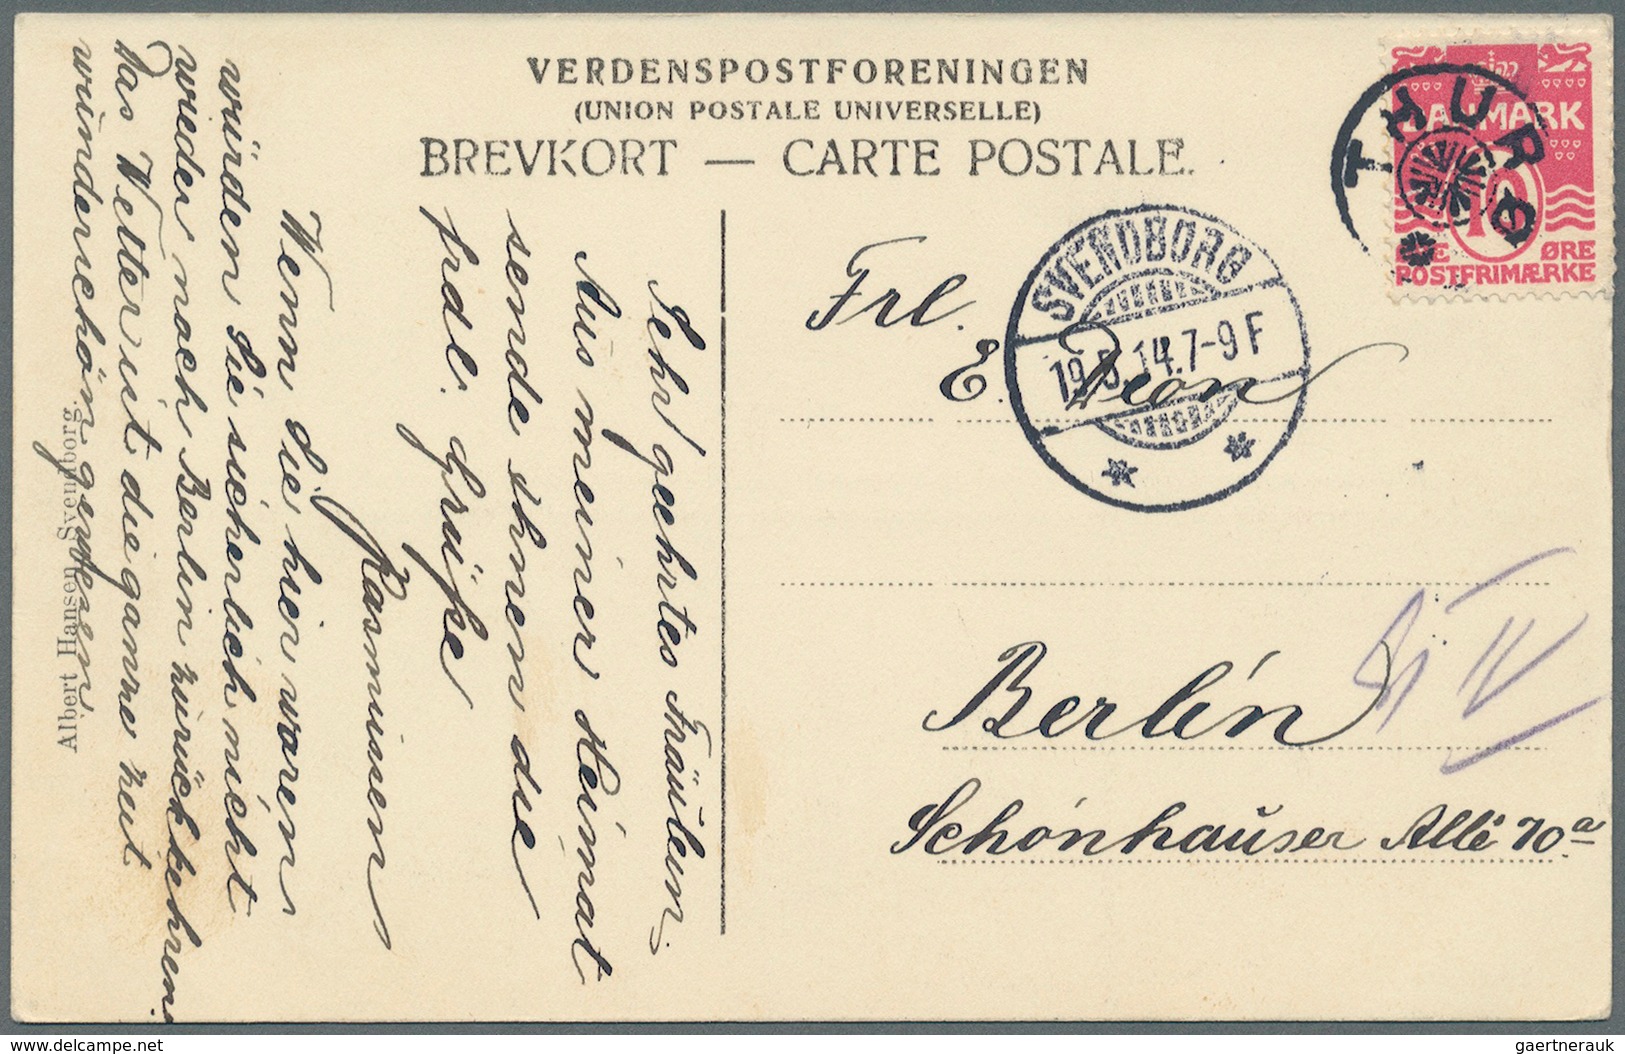 VERDENSPOSTFORENINGEN
(UNION POSTALE UNIVERSELLE)
BREVKORT — CARTE POSTALE.
DANMARK
10
ØRE
POSTFRIMÆRKE
THURØ
SVENDBORG
19.5.14.7-9 F
Frl.
E.
Berlin
Schönhauser Allé 70a
IV
Sehr geehrtes Fräulein.
Aus meiner Heimat
sende Ihnen die
frdl. Grüße
Rasmussen
Wenn Sie hier waren
würden Sie sicherlich nicht
wieder nach Berlin zurückkehren.
Das Wetter ist die ganze Zeit
wunderschön gewesen
Albert Hansen, Svendborg.
gaertnerauk